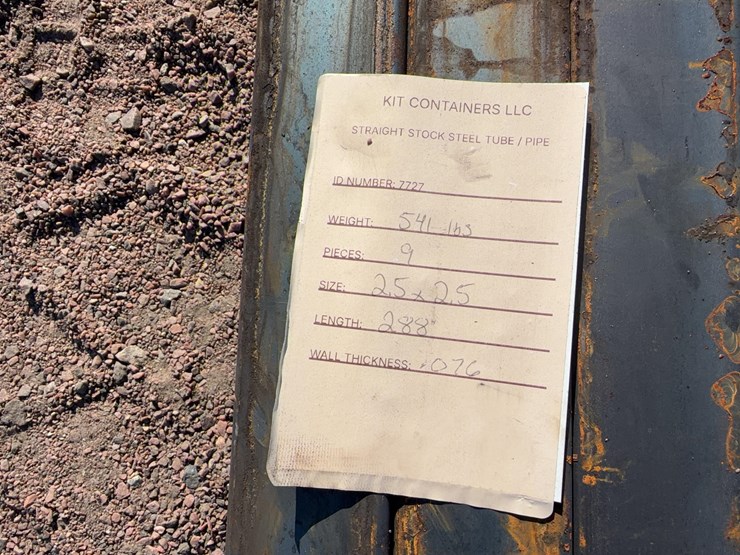 KIT CONTAINERS LLC
STRAIGHT STOCK STEEL TUBE / PIPE
ID NUMBER: 7727
WEIGHT: 541 lbs
PIECES: 9
SIZE: 2.5 x 2.5
LENGTH: 288
WALL THICKNESS: .076